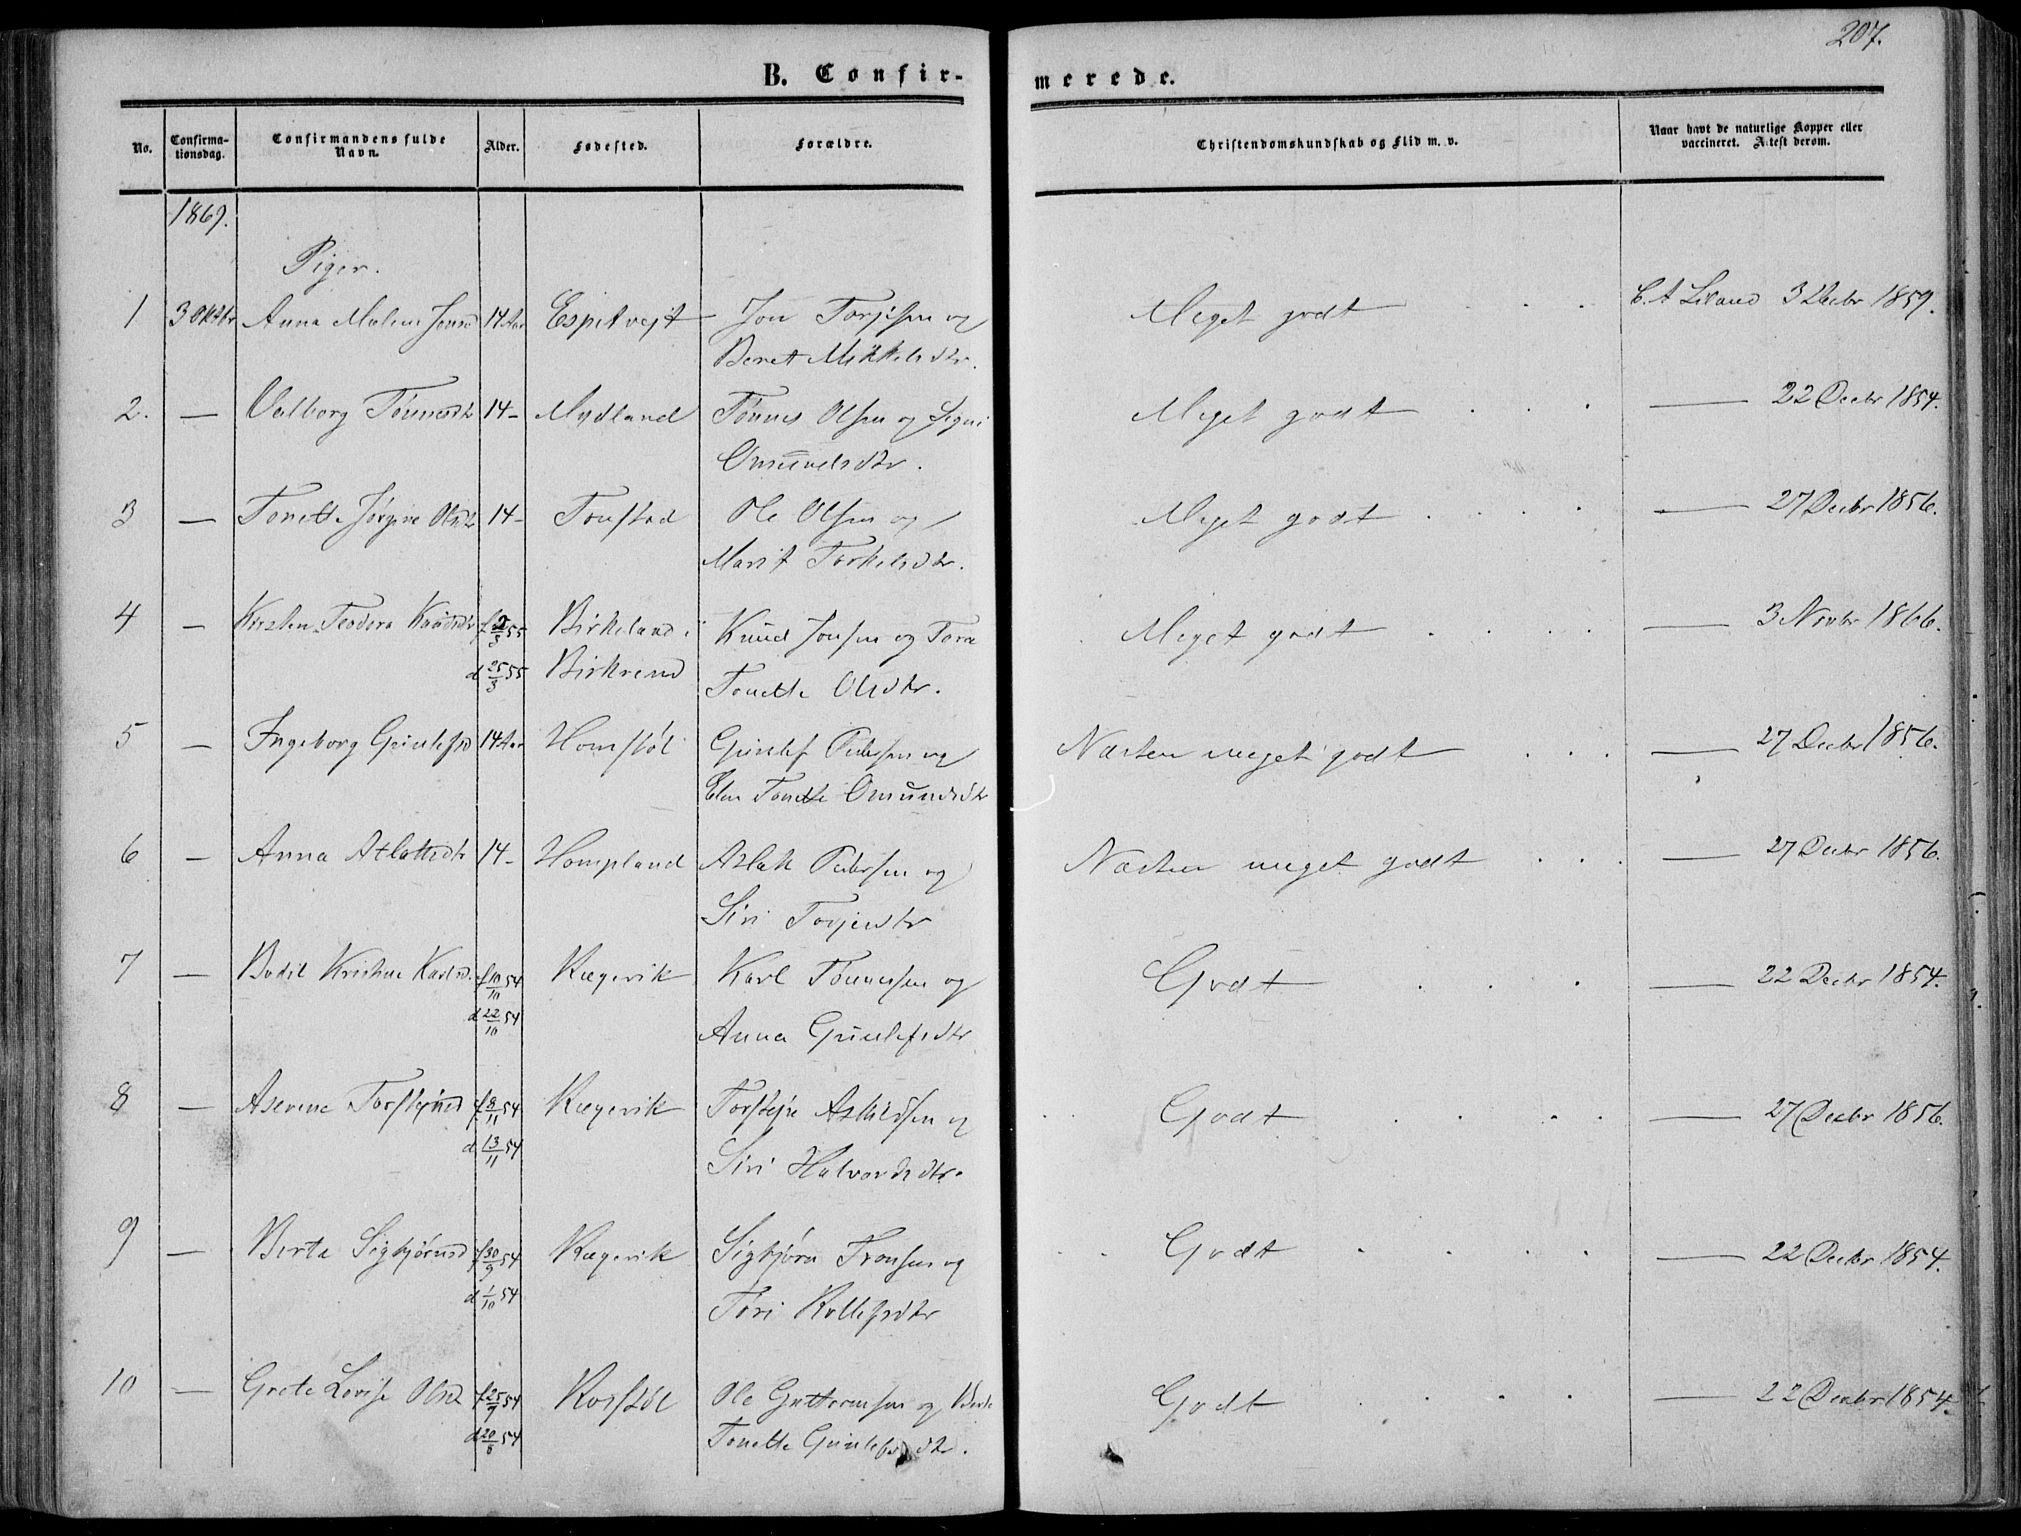 207.
B. Confir-
merede.
No.
Confirma-
tionsdag.
Confirmandens fulde
Navn.
Alder.
Fødested.
Forældre.
Christendomskundskab og Flid m. v.
Naar havt de naturlige Kopper eller
vaccineret. Attest derom.
1869.
Piger.
1 3 Oktbr Anna Malene Jonsd 14 Aar Espetvejt Jon Torjesen og Meget godt 3 Decbr 1859.
Beret Mikkelsdtr.
2. — Valborg Tønnesdtr 14 - Mydland Tønnes Olsen og Signi Meget godt — 22 Decbr 1854.
Omundsdtr.
3 — Tonette Jørgine Olsdtr 14 - Tonstad Ole Olsen og Meget godt — 27 Decbr 1856.
Marit Torkelsdtr.
4 — Kirsten Teodora Knudsdtr f 2/3 55 Birkeland i Knud Jonsen og Tora Meget godt — 3 Novbr 1866.
d 25/3 55 Birkrem Tonette Olsdtr.
5 — Ingeborg Gunlefsd 14 Aar Homstøl Gunlef Pedersen og Næsten meget godt — 27 Decbr 1856.
Elen Tonette Omundsdtr
6 — Anna Atlaksdtr 14 - Hompland Atlak Pedersen og Næsten meget godt — 27 Decbr 1856.
Siri Torjesdtr
7 — Bodil Kristine Karlsd. f 10/10 54 Rægevik Karl Tønnessen og Godt — 22 Decbr 1854.
d 22/10 54 Anna Gunlefsdtr
8 — Aserene Torstejnsd f 8/11 54 Rægevik Torstejn Aslaksen og Godt — 27 Decbr 1856.
d 13/11 54 Siri Halvordsdtr.
9 — Berta Sigbjørnsd f 30/9 54 Rægevik Sigbjørn Tronsen og Godt — 22 Decbr 1854.
d 1/10 54 Tori Rollefsdtr
10 — Grete Lovise Olsd f 25/9 54 Rosstøl Ole Guttormsen og Berte Godt — 22 Decbr 1854.
d 20/8 54 Tonette Gunlefsdtr.